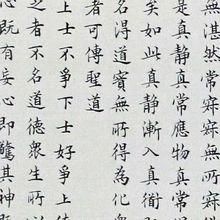 無湛然常寂寂無所
是真靜真常應物真常
矣如此真靜漸入真衜
名得道實無所得為化
者可傳聖道
上士不爭下士好爭上
之者不名道德眾生所
心既有妄心即驚其神